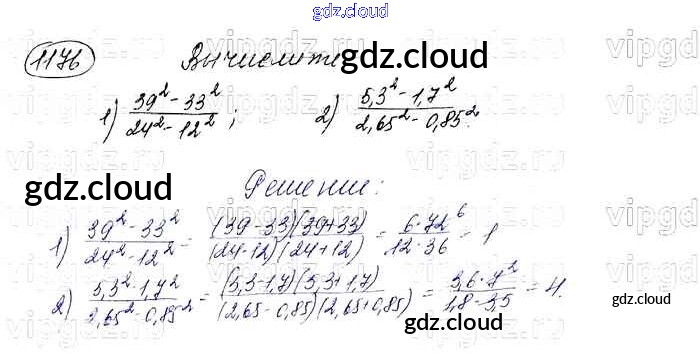 gdz.cloud
1176 Вычислите
gdz.cloud
1) (39² - 33²)/(24² - 12²); 2) (5,3² - 1,7²)/(2,65² - 0,85²).
gdz.cloud
Решение:
1) (39² - 33²)/(24² - 12²) = ((39 - 33)(39 + 33))/((24 - 12)(24 + 12)) = (6 · 72⁶)/(12 · 36) = 1
2) (5,3² - 1,7²)/(2,65² - 0,85²) = ((5,3 - 1,7)(5,3 + 1,7))/((2,65 - 0,85)(2,65 + 0,85)) = (3,6 · 7²)/(1,8 · 3,5) = 4.
gdz.cloud
gdz.cloud